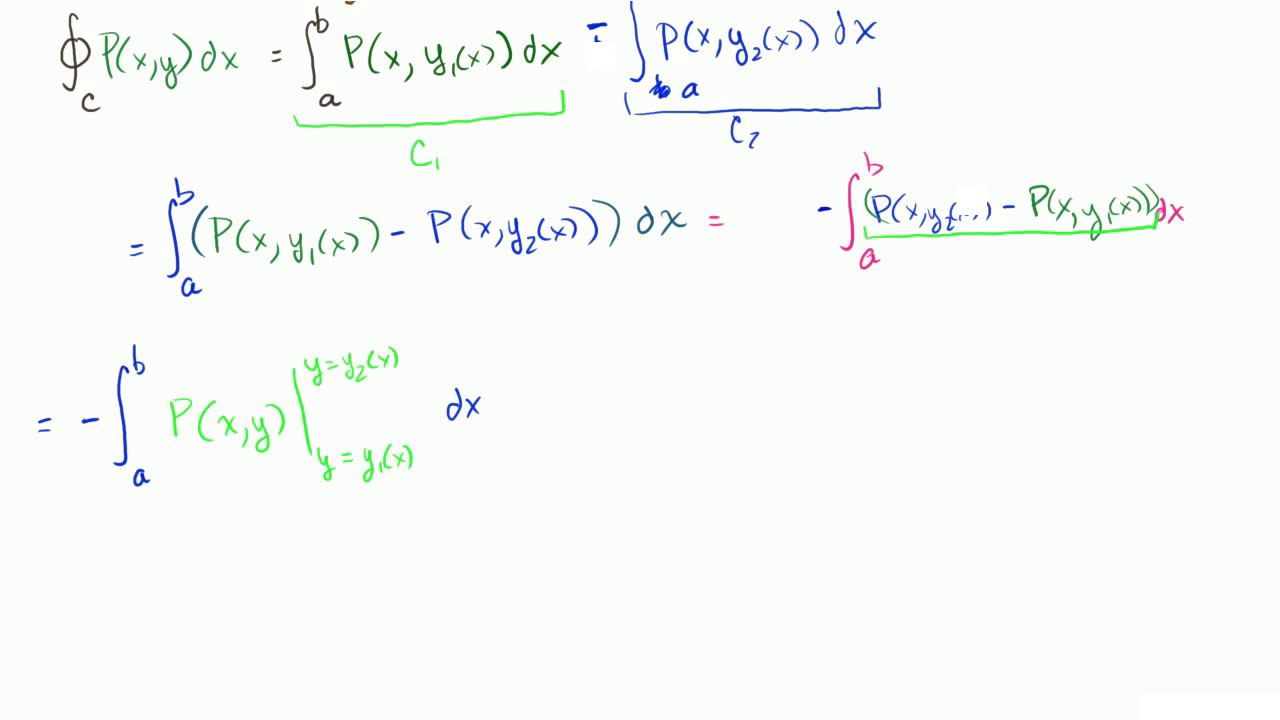 ∮_C P(x,y) dx = ∫_a^b P(x, y₁(x)) dx - ∫_a P(x, y₂(x)) dx
C₁ C₂
= ∫_a^b (P(x, y₁(x)) - P(x, y₂(x))) dx = - ∫_a^b (P(x, y₂(...) - P(x, y₁(x))) dx
= - ∫_a^b P(x,y) |_{y = y₁(x)}^{y = y₂(x)} dx